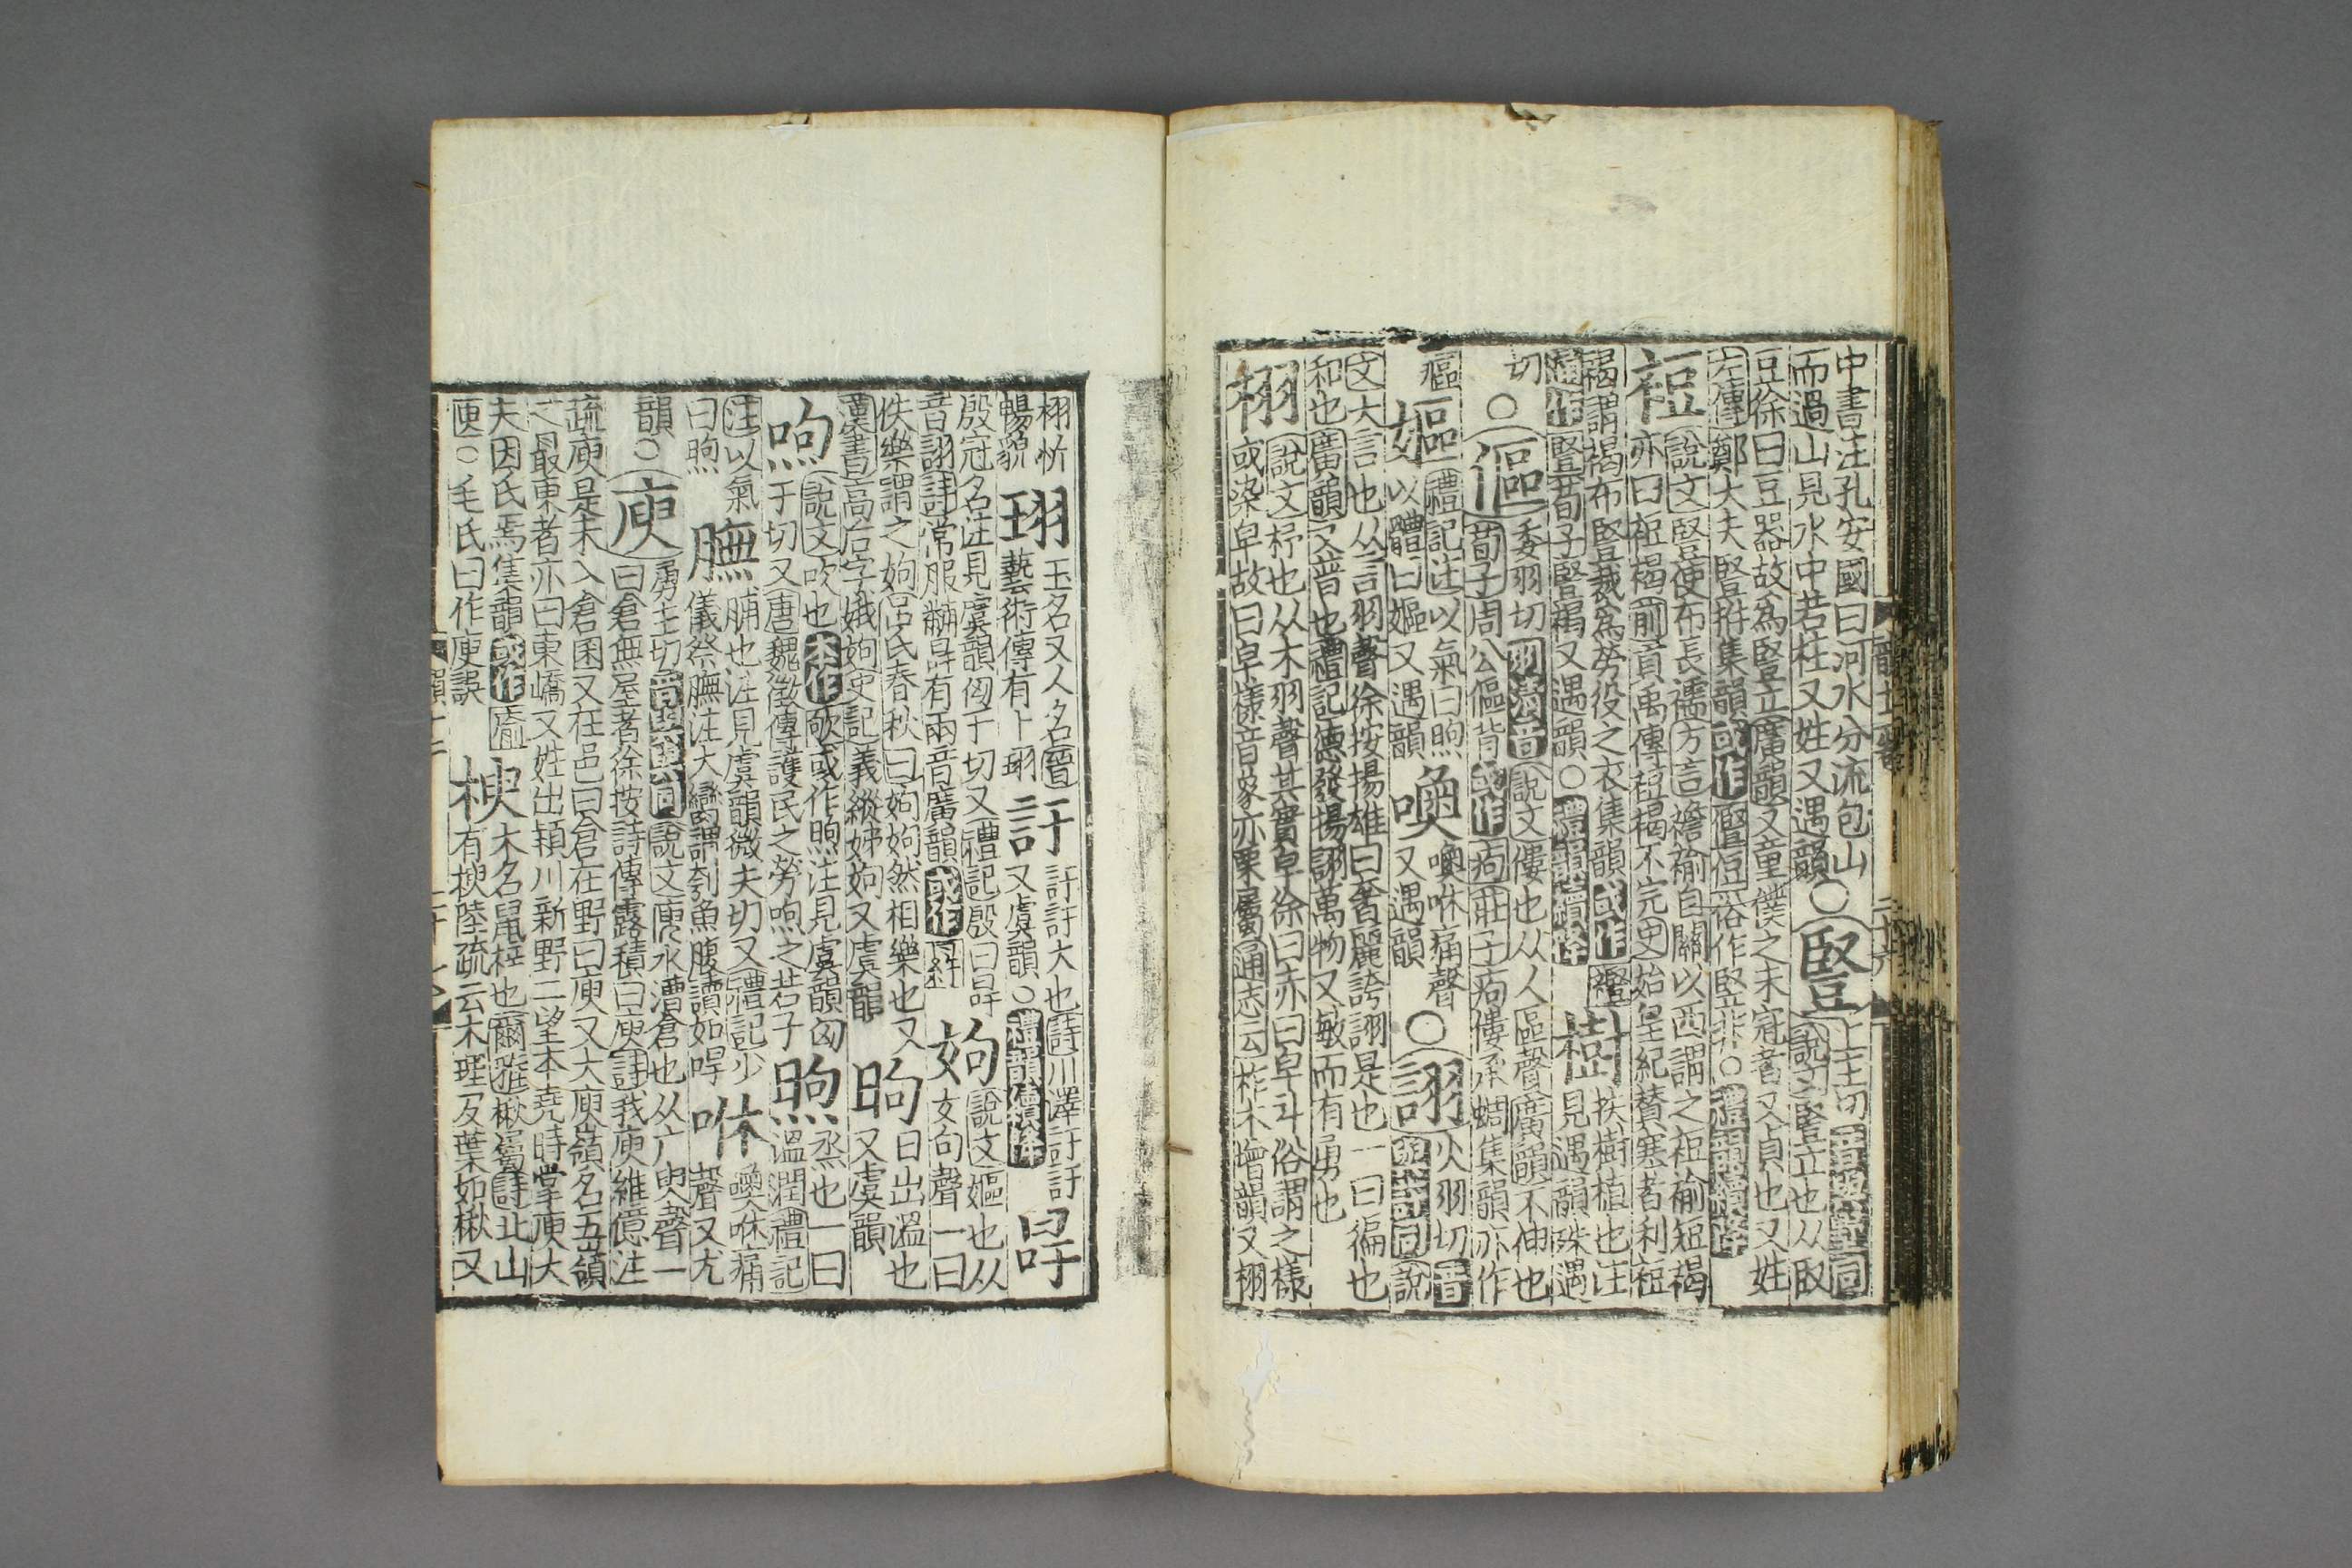 中書注孔安國曰河水分流包山
而過山見水中若柱又姓又遇韻○豎上主切
說文豎立也从臤
豆徐曰豆器故爲豎立廣韻又童僕之未冠者又貞也又姓
左傳鄭大夫豎拊集韻或作䜿侸俗作竪非○禮韻續降
裋說文豎使布長襦方言襜褕自關以西謂之裋褕短褐
亦曰裋褐前貢禹傳裋褐不完史始皇紀贊寒者利裋
褐謂褐布豎裁爲勞役之衣集韻或作𧞫
通作豎荀子豎褐又遇韻○禮韻續降
樹扶樹植也注見遇韻殊遇
切○傴委羽切羽清音說文僂也从人區聲廣韻不伸也
荀子周公傴背或作痀莊子痀僂承蜩集韻亦作
𤸎嫗禮記注以氣曰煦
以體曰嫗又遇韻
噢噢咻痛聲
又遇韻○詡火羽切音
與許同說
文大言也从言羽聲徐按揚雄曰奢麗誇詡是也一曰徧也
和也廣韻又普也禮記德發揚詡萬物又敏而有勇也
栩說文杼也从木羽聲其實皁徐曰亦曰皁斗俗謂之樣
或染皁故曰皁樣音象亦栗屬通志云柞木增韻又栩
栩忻
暢貌
珝玉名又人名晉
藝術傳有卜珝
訏訏訏大也詩川澤訏訏
又虞韻○禮韻續降
冔
殷冠名注見虞韻匈于切又禮記殷曰冔
音詡註常服黼冔有兩音廣韻或作𦀓
姁說文嫗也从
女句聲一曰
佚樂謂之姁呂氏春秋曰姁姁然相樂也又
漢書高后字娥姁史記義縱姊姁又虞韻
昫日出溫也
又虞韻
呴說文吹也本作欨或作煦注見虞韻匈
于切又唐魏徵傳護民之勞呴之若子
煦烝也一曰
溫潤禮記
注以氣
曰煦
膴脯也注見虞韻微夫切又禮記少
儀祭膴注大臠謂刳魚腹讀如冔
咻噢咻痛
聲又尤
韻○庾勇主切音與與同說文庾水漕倉也从广臾聲一
曰倉無屋者徐按詩傳露積曰庾詩我庾維億注
疏庾是未入倉囷又在邑曰倉在野曰庾又大庾嶺名五嶺
之最東者亦曰東嶠又姓出潁川新野二望本堯時掌庾大
夫因氏焉集韻或作㢏
庾○毛氏曰作庾誤
楰木名鼠梓也爾雅楸屬詩北山
有楰陸疏云木理及葉如楸又